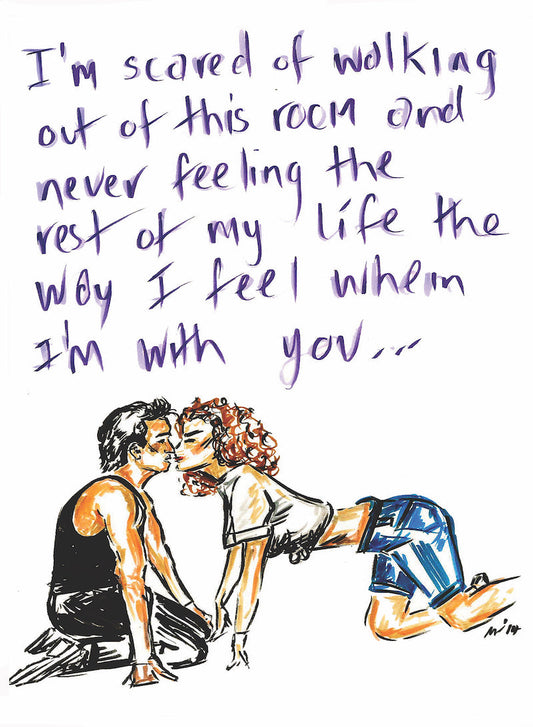 I'm scared of walking
out of this room and
never feeling the
rest of my life the
way I feel when
I'm with you...